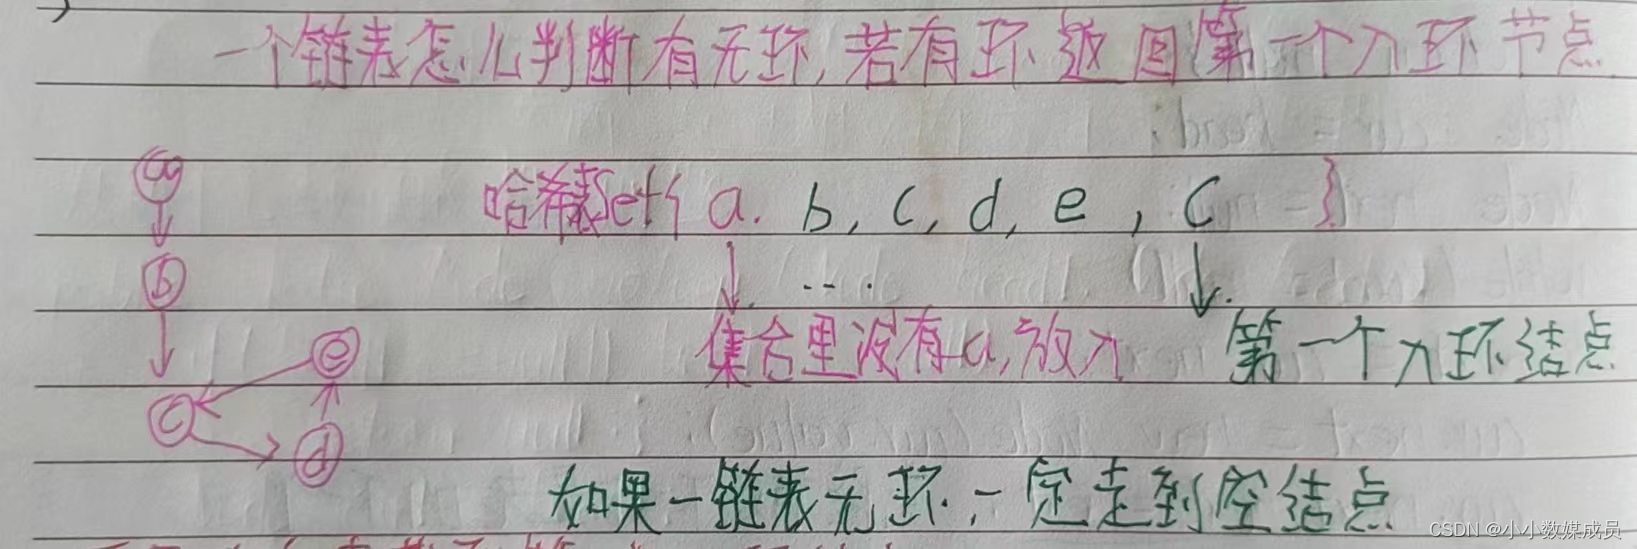 一个链表怎么判断有无环,若有环返回第一个入环节点
a
哈希表Set{ a. b, c, d, e , c }
b
....
集合里没有a,放入
第一个入环结点
e
c
d
如果一链表无环,一定走到空结点
CSDN @小小数媒成员